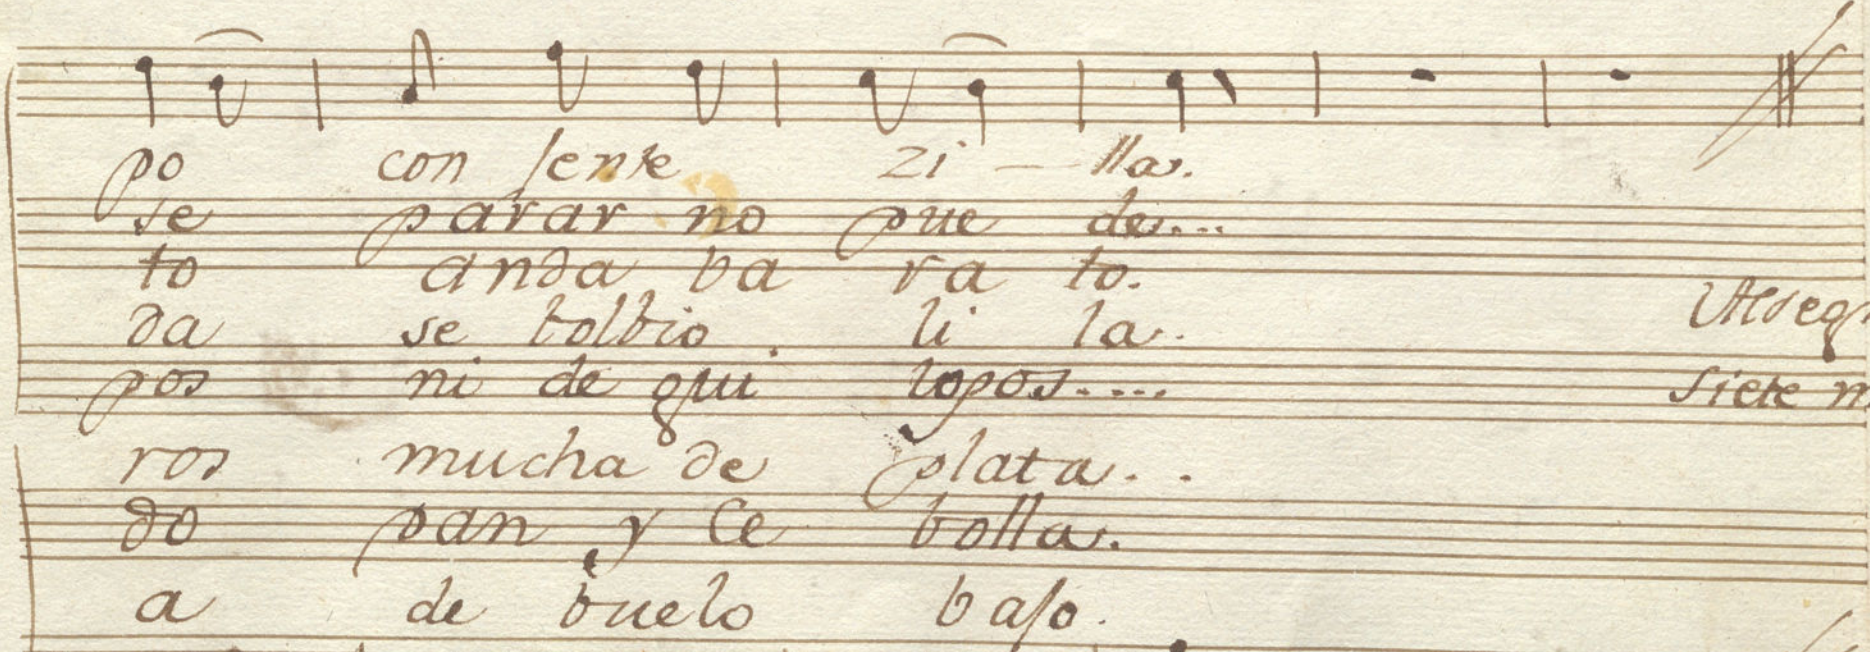 po con sente zi - lla.
se parar no pue de....
to anda ba ra to.
da se bolbio. li la.
pos ni de qui lopos.....
siete
ros mucha de plata. .
do pan y ce bolla.
a de buelo bajo.